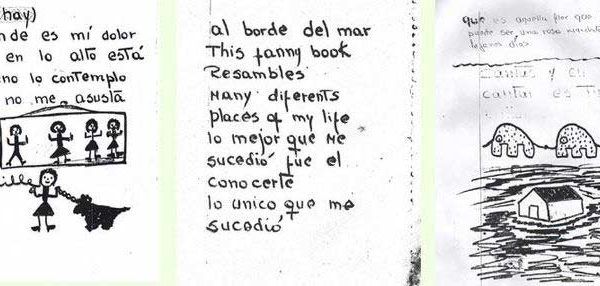 hay)
nde es mí dolor
en lo alto está
no lo contemplo
no me asusta
ille
al borde del mar
This fanny book
Resambles
Many diferents
places of my life
lo mejor que me
sucedió fue el
conocerte
lo unico que me
sucedió
que es aquella flor que
puede ser una rosa
lejanos dias
cantas y en
cantar es